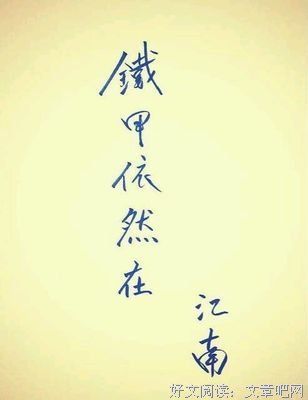 鐵甲依然在
江南
好文阅读：文章吧网